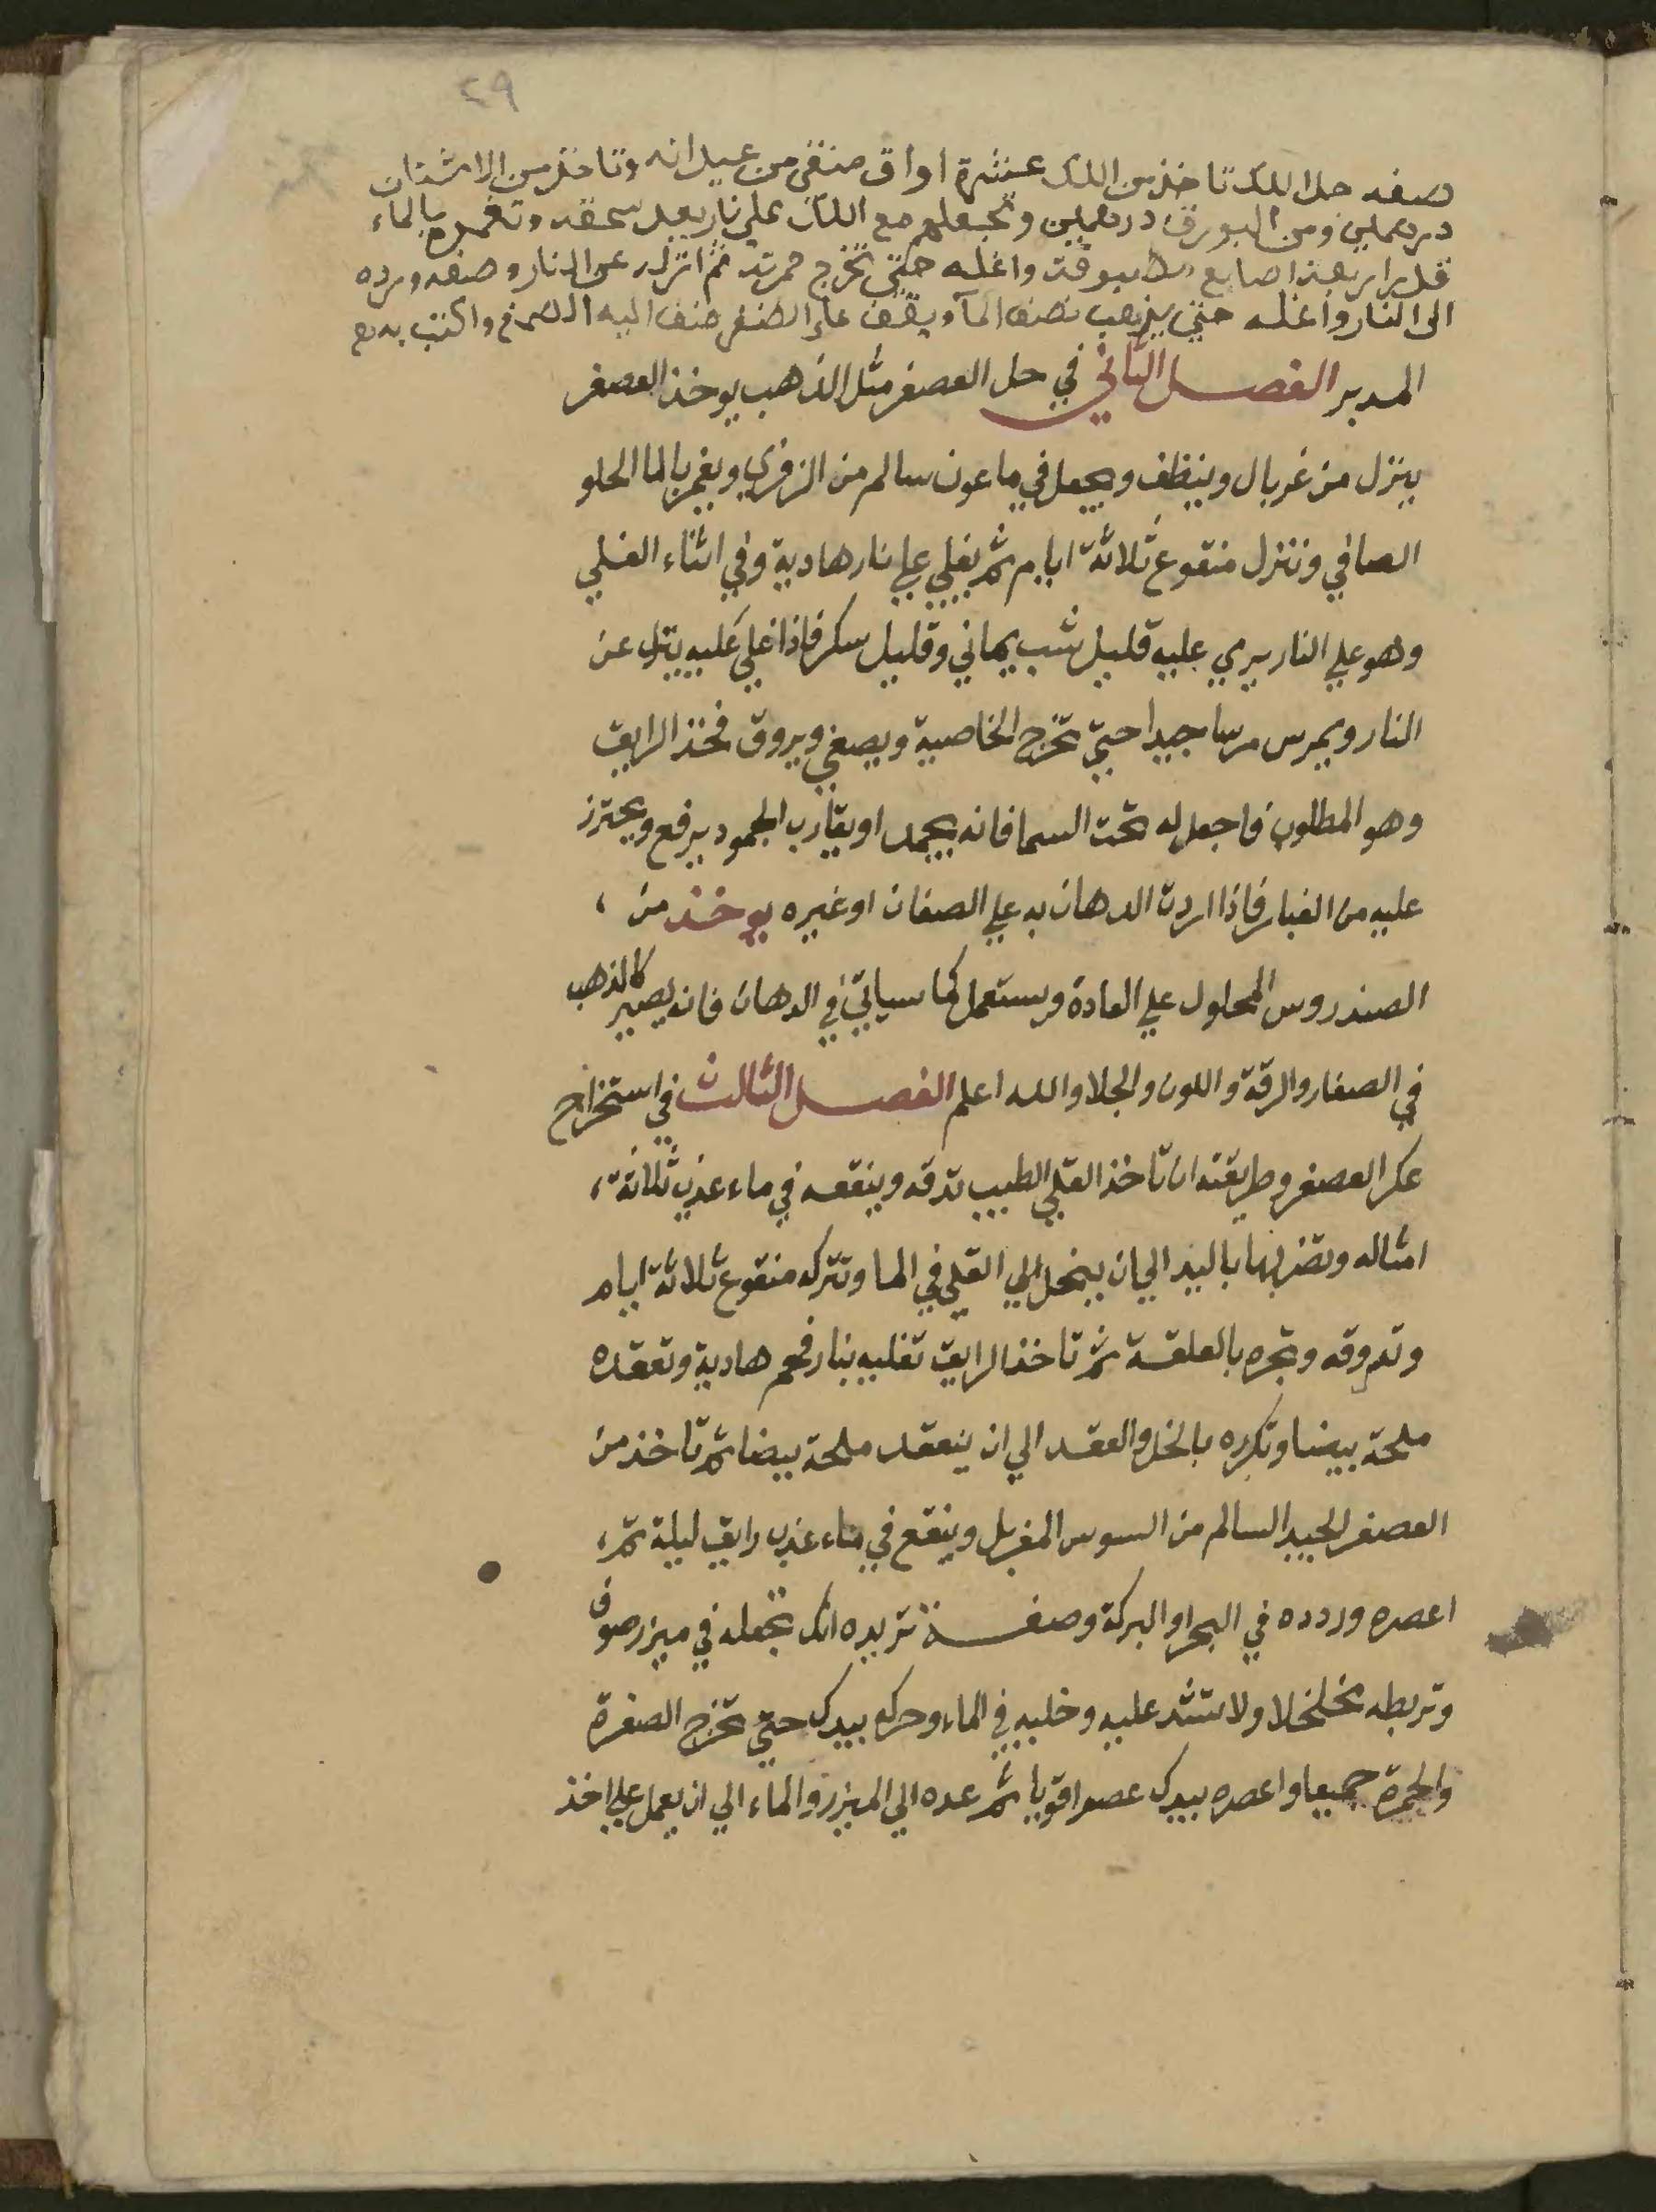 ٢٩
صفه حل اللك تاخذ من اللك عشرة اواق منقى من عيدانه وتاخذ من الاشنان
درهمين ومن البورق درهمين وتجعلهم مع اللك على نار بعد سحقه وتغمره بالماء
قدر اربعة اصابع واغله حتى تخرج حمرته ثم انزله عن النار وصفه ورده
الى النار واغله حتى يذهب نصف الماء ويقف على الظفر ضف اليه الصمغ واكتب به
المدبر الفصل الثاني في حل العصفر مثل الذهب يوخذ العصفر
ينزل من غربال وينظف ويجعل في ماعون سالم من الزفري ويغمر بالما الحلو
الصافي وننزل منقوع ثلاثة ايام ثم يغلي علي نار هادية وفي اثناء الغلي
وهو علي النار يرمي عليه قليل شب يماني وقليل سكر فاذا غلي غليه ينزل عن
النار ويمرس مرسا جيدا حتي تخرج الخاصية ويصفي ويروق فخذ الرايق
وهو المطلوب فاجعل له تحت السما فانه يجمد او يقارب الجمود يرفع ويحترز
عليه من الغبار فاذا اردت الدهان به علي الصفان او غيره يوخذ من
الصندروس المحلول علي العادة ويستعمل كما سياتي في الدهان فانه يصير كالذهب
في الصفار والرقة واللون والجلا والله اعلم الفصل الثالث في استخراج
عكر العصفر وطريقته ان تاخذ القلي الطيب تدقه وينقعه في ماء عذب ثلاثة
امثاله وتضربها باليد الي ان ينحل الي القلي في الما وتتركه منقوع ثلاثة ايام
وتروقه وتجره بالعلقة ثم تاخذ الرايق تغليه بنار فحم هادية وتعقده
ملحة بيضا وتكرره بالخل والعقد الي ان ينعقد ملحة بيضا ثم تاخذ من
العصفر الجيد السالم من السوس المغربل وينقع في ماء عذب رايق ليلة ثم
اعصره وردده في البحر او البركة وصفة تريده انك تجعله في ميزر صوف
وتربطه مخلخلا ولا تشد عليه وخليه في الماء وحركه بيدك حتي تخرج الصفرة
والحمرة جميعا واعصره بيدك عصرا قويا ثم عده الي الميزر والماء الي ان يعمل علي اخذ